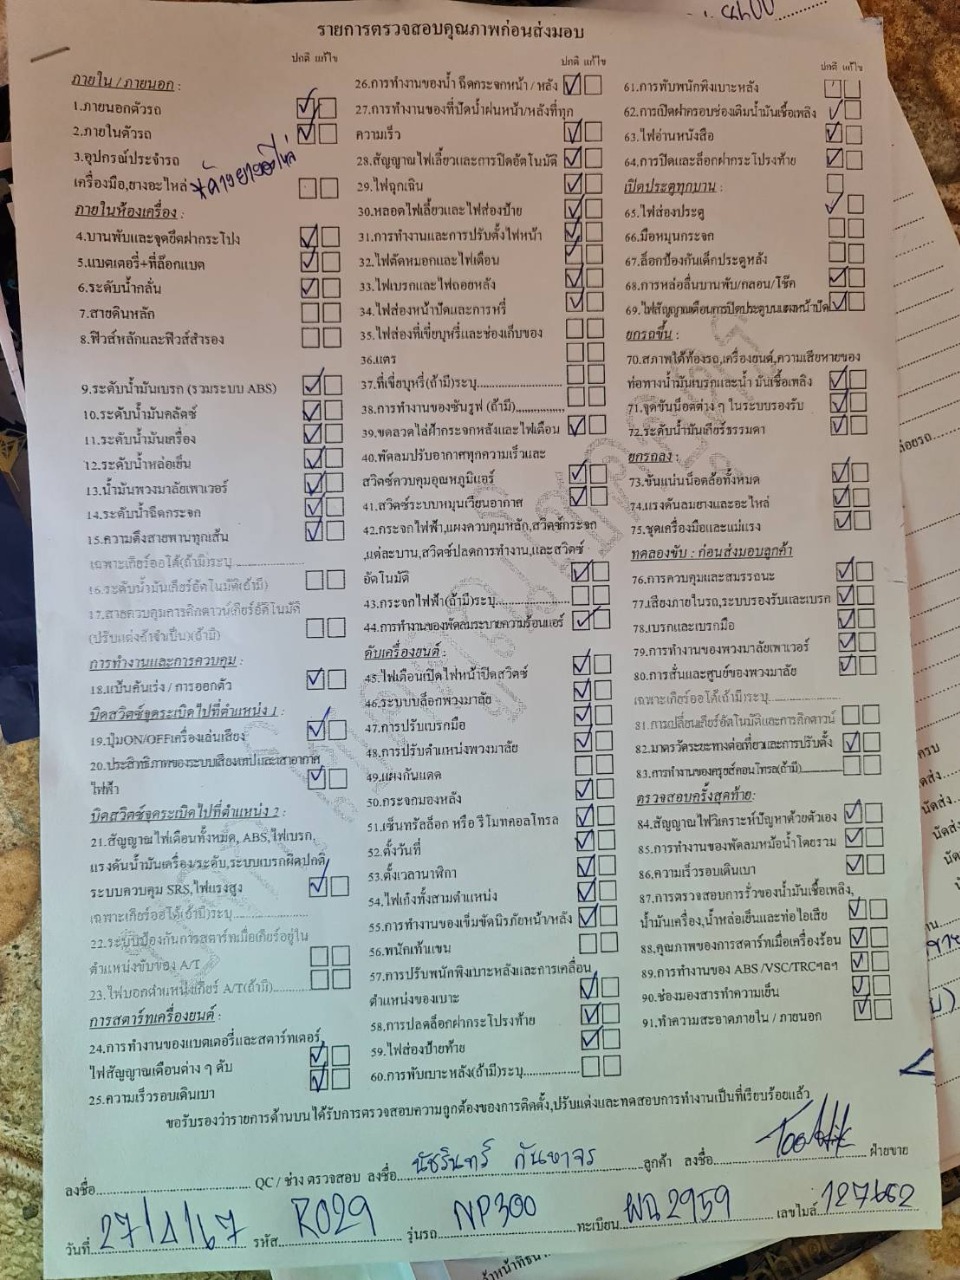 รายการตรวจสอบคุณภาพก่อนส่งมอบ
ปกติ แก้ไข
ภายใน / ภายนอก :
1.ภายนอกตัวรถ
2.ภายในตัวรถ
3.อุปกรณ์ประจำรถ
เครื่องมือ,ยางอะไหล่ *ค้างยางอะไหล่
ภายในห้องเครื่อง :
4.บานพับและจุดยึดฝากระโปรง
5.แบตเตอรี่+ที่ล๊อกแบต
6.ระดับน้ำกลั่น
7.สายดินหลัก
8.ฟิวส์หลักและฟิวส์สำรอง
9.ระดับน้ำมันเบรก (รวมระบบ ABS)
10.ระดับน้ำมันคลัตซ์
11.ระดับน้ำมันเครื่อง
12.ระดับน้ำหล่อเย็น
13.น้ำมันพวงมาลัยเพาเวอร์
14.ระดับน้ำฉีดกระจก
15.ความตึงสายพานทุกเส้น
เฉพาะเกียร์ออโต้(ถ้ามี)ระบุ
16.ระดับน้ำมันเกียร์อัตโนมัติ(ถ้ามี)
17.สายควบคุมการคิกดาวน์เกียร์อัตโนมัติ
(ปรับแต่งถ้าจำเป็น)(ถ้ามี)
การทำงานและการควบคุม :
18.แป้นคันเร่ง / การออกตัว
บิดสวิตซ์จุดระเบิดไปที่ตำแหน่ง 1 :
19.ปุ่มON/OFFเครื่องเล่นเสียง
20.ประสิทธิภาพของระบบเสียงเทปและเสาอากาศ
ไฟฟ้า
บิดสวิตซ์จุดระเบิดไปที่ตำแหน่ง 2 :
21.สัญญาณไฟเตือนทั้งหมด, ABS,ไฟเบรก,
แรงดันน้ำมันเครื่อง/ระดับ,ระบบเบรกผิดปกติ
ระบบควบคุม SRS,ไฟแรงสูง
เฉพาะเกียร์ออโต้(ถ้ามี)ระบุ
22.ระบบป้องกันการสตาร์ทเมื่อเกียร์อยู่ใน
ตำแหน่งขับของ A/T
23.ไฟบอกตำแหน่งเกียร์ A/T(ถ้ามี)
การสตาร์ทเครื่องยนต์ :
24.การทำงานของแบตเตอรี่และสตาร์ทเตอร์,
ไฟสัญญาณเตือนต่าง ๆ ดับ
25.ความเร็วรอบเดินเบา
ปกติ แก้ไข
26.การทำงานของน้ำ ฉีดกระจกหน้า / หลัง
27.การทำงานของที่ปัดน้ำฝนหน้า/หลังที่ทุก
ความเร็ว
28.สัญญาณไฟเลี้ยวและการปิดอัตโนมัติ
29.ไฟฉุกเฉิน
30.หลอดไฟเลี้ยวและไฟส่องป้าย
31.การทำงานและการปรับตั้งไฟหน้า
32.ไฟตัดหมอกและไฟเตือน
33.ไฟเบรกและไฟถอยหลัง
34.ไฟส่องหน้าปัดและการหรี่
35.ไฟส่องที่เขี่ยบุหรี่และช่องเก็บของ
36.แตร
37.ที่เขี่ยบุหรี่(ถ้ามี)ระบุ
38.การทำงานของซันรูฟ (ถ้ามี)
39.ขดลวดไล่ฝ้ากระจกหลังและไฟเตือน
40.พัดลมปรับอากาศทุกความเร็วและ
สวิตช์ควบคุมอุณหภูมิแอร์
41.สวิตช์ระบบหมุนเวียนอากาศ
42.กระจกไฟฟ้า,แผงควบคุมหลัก,สวิตช์กระจก
,แต่ละบาน,สวิตซ์ปลดการทำงาน,และสวิตช์
อัตโนมัติ
43.กระจกไฟฟ้า(ถ้ามี)ระบุ
44.การทำงานของพัดลมระบายความร้อนแอร์
ดับเครื่องยนต์ :
45.ไฟเตือนเปิดไฟหน้าปิดสวิตซ์
46.ระบบบล็อกพวงมาลัย
47.การปรับเบรกมือ
48.การปรับตำแหน่งพวงมาลัย
49.แผงกันแดด
50.กระจกมองหลัง
51.เซ็นทรัลล็อก หรือ รีโมทคอลโทรล
52.ตั้งวันที่
53.ตั้งเวลานาฬิกา
54.ไฟเก๋งทั้งสามตำแหน่ง
55.การทำงานของเข็มขัดนิรภัยหน้า/หลัง
56.พนักเท้าแขน
57.การปรับพนักพิงเบาะหลังและการเคลื่อน
ตำแหน่งของเบาะ
58.การปลดล็อกฝากระโปรงท้าย
59.ไฟส่องป้ายท้าย
60.การพับเบาะหลัง(ถ้ามี)ระบุ
ปกติ แก้ไข
61.การพับพนักพิงเบาะหลัง
62.การเปิดฝาครอบช่องเติมน้ำมันเชื้อเพลิง
63.ไฟอ่านหนังสือ
64.การปิดและล็อกฝากระโปรงท้าย
เปิดประตูทุกบาน :
65.ไฟส่องประตู
66.มือหมุนกระจก
67.ล็อกป้องกันเด็กประตูหลัง
68.การหล่อลื่นบานพับ/กลอน/โช๊ค
69.ไฟสัญญาณเตือนการปิดประตูบนแผงหน้าปัด
ยกรถขึ้น :
70.สภาพใต้ท้องรถ,เครื่องยนต์,ความเสียหายของ
ท่อทางน้ำมันเบรกและน้ำ มันเชื้อเพลิง
71.จุดขันน็อตต่าง ๆ ในระบบรองรับ
72.ระดับน้ำมันเกียร์ธรรมดา
ยกรถลง :
73.ขันแน่นน็อตล้อทั้งหมด
74.แรงดันลมยางและอะไหล่
75.ชุดเครื่องมือและแม่แรง
ทดลองขับ : ก่อนส่งมอบลูกค้า
76.การควบคุมและสมรรถนะ
77.เสียงภายในรถ,ระบบรองรับและเบรก
78.เบรกและเบรกมือ
79.การทำงานของพวงมาลัยเพาเวอร์
80.การสั่นและศูนย์ของพวงมาลัย
เฉพาะเกียร์ออโต้(ถ้ามี)ระบุ
81.การเปลี่ยนเกียร์อัตโนมัติและการคิกดาวน์
82.มาตรวัดระยะทางต่อเที่ยวและการปรับตั้ง
83.การทำงานของครุยส์คอนโทรล(ถ้ามี)
ตรวจสอบครั้งสุดท้าย:
84.สัญญาณไฟวิเคราะห์ปัญหาด้วยตัวเอง
85.การทำงานของพัดลมหม้อน้ำโดยรวม
86.ความเร็วรอบเดินเบา
87.การตรวจสอบการรั่วของน้ำมันเชื้อเพลิง,
น้ำมันเครื่อง,น้ำหล่อเย็นและท่อไอเสีย
88.คุณภาพของการสตาร์ทเมื่อเครื่องร้อน
89.การทำงานของ ABS /VSC/TRCฯลฯ
90.ช่องมองสารทำความเย็น
91.ทำความสะอาดภายใน / ภายนอก
ขอรับรองว่ารายการด้านบนได้รับการตรวจสอบความถูกต้องของการติดตั้ง,ปรับแต่งและทดสอบการทำงานเป็นที่เรียบร้อยแล้ว
ลงชื่อ QC / ช่าง ตรวจสอบ ลงชื่อ นัชรินทร์ กันหาจร ลูกค้า ลงชื่อ ฝ่ายขาย
วันที่ 27/4/67 รหัส R029 รุ่นรถ NP300 ทะเบียน ผฉ 2959 เลขไมล์ 127662